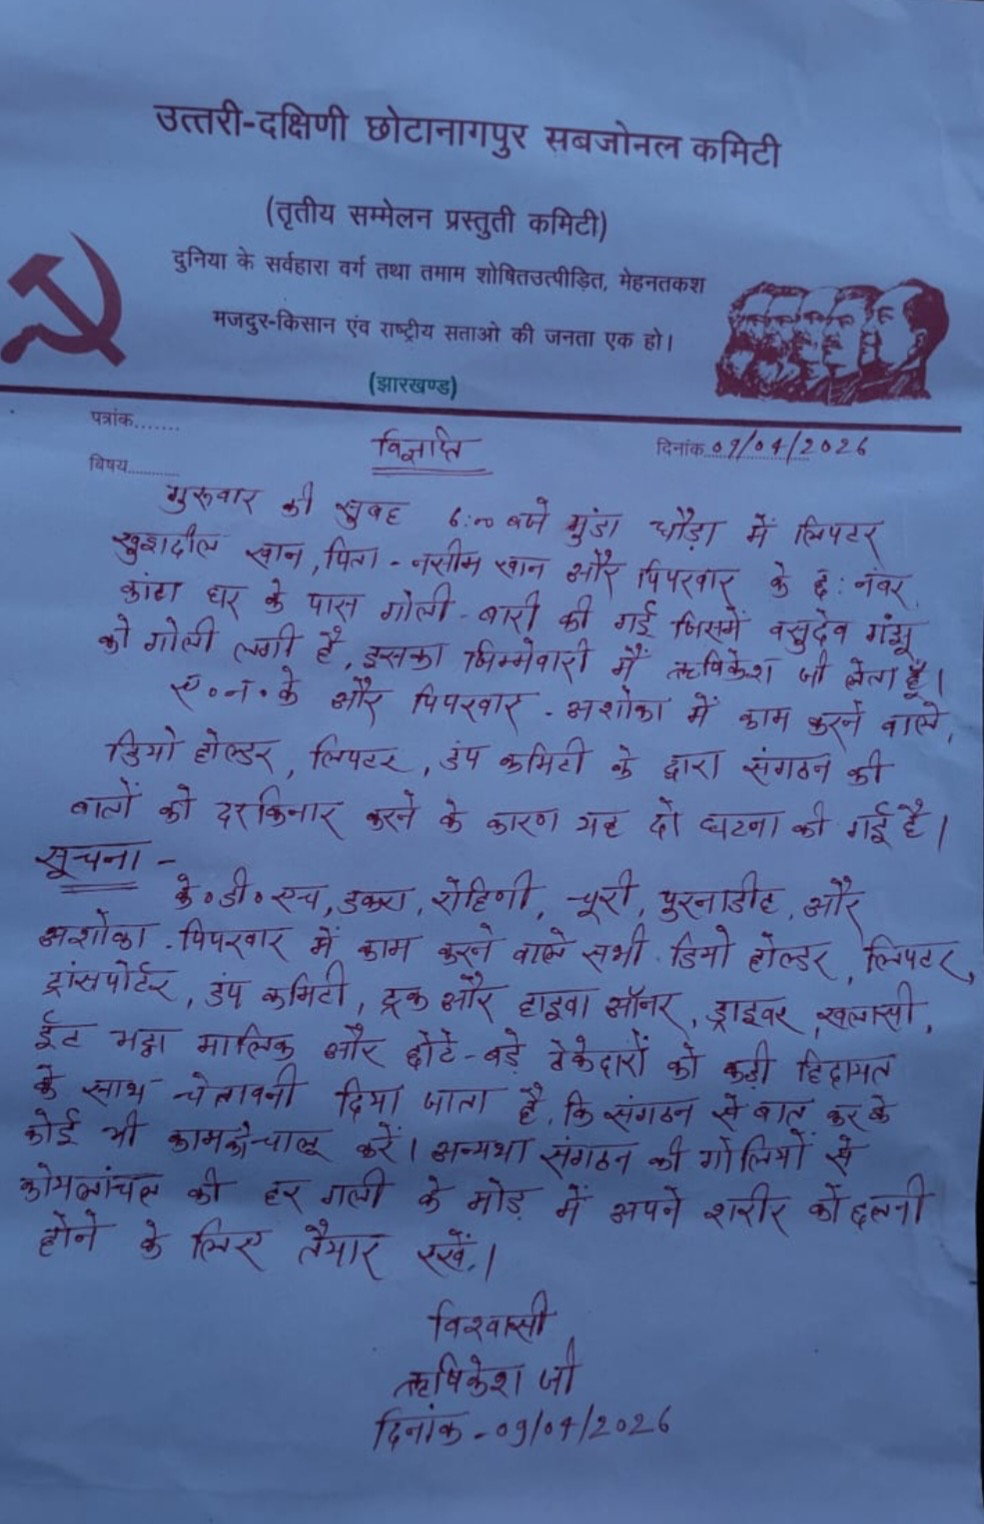 उत्तरी-दक्षिणी छोटानागपुर सबजोनल कमिटी
(तृतीय सम्मेलन प्रस्तुती कमिटी)
दुनिया के सर्वहारा वर्ग तथा तमाम शोषितउत्पीड़ित, मेहनतकश
मजदुर-किसान एंव राष्ट्रीय सताओ की जनता एक हो।
(झारखण्ड)
पत्रांक.......
विज्ञप्ति दिनांक 09/04/2026
विषय..........
गुरूवार की सुबह 6:00 बजे मुंडा चौड़ा में लिफ्टर
खुशदील खान, पिता - नसीम खान और पिपरवार के छ: नंबर
कांटा घर के पास गोली-बारी की गई जिसमें वसुदेव गंझू
को गोली लगी है, इसका जिम्मेवारी मैं ऋषिकेश जी लेता हूँ।
एo नo के और पिपरवार - अशोका में काम करने वाले,
डियो होल्डर, लिफ्टर, डंप कमिटी के द्वारा संगठन की
बातों को दरकिनार करने के कारण यह दो घटना की गई है।
सूचना -
केo डीo एच, डकरा, रोहिणी, चूरी, पुरनाडीह, और
अशोका - पिपरवार में काम करने वाले सभी डियो होल्डर, लिफ्टर,
ट्रांसपोर्टर, डंप कमिटी, ट्रक और हाइवा ऑनर, ड्राइवर, खलासी,
ईंट भट्ठा मालिक और छोटे-बड़े ठेकेदारों को कड़ी हिदायत
के साथ चेतावनी दिया जाता है, कि संगठन से बात कर के
कोई भी काम को चालू करें। अन्यथा संगठन की गोलियों से
कोयलांचल की हर गली के मोड़ में अपने शरीर को छलनी
होने के लिए तैयार रखें।
विश्वासी
ऋषिकेश जी
दिनांक - 09/04/2026